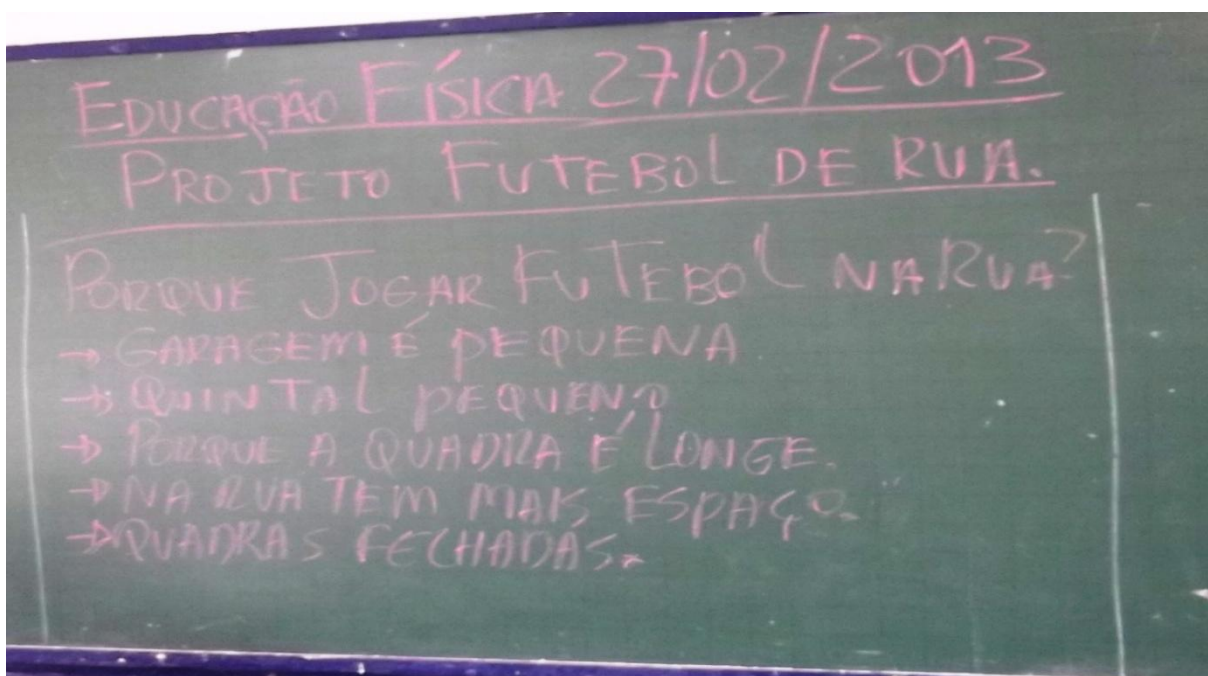 EDUCAÇÃO FÍSICA 27/02/2013
PROJETO FUTEBOL DE RUA.
PORQUE JOGAR FUTEBOL NA RUA?
→ GARAGEM É PEQUENA
→ QUINTAL PEQUENO
→ PORQUE A QUADRA É LONGE.
→ NA RUA TEM MAIS ESPAÇO.
→ QUADRAS FECHADAS.